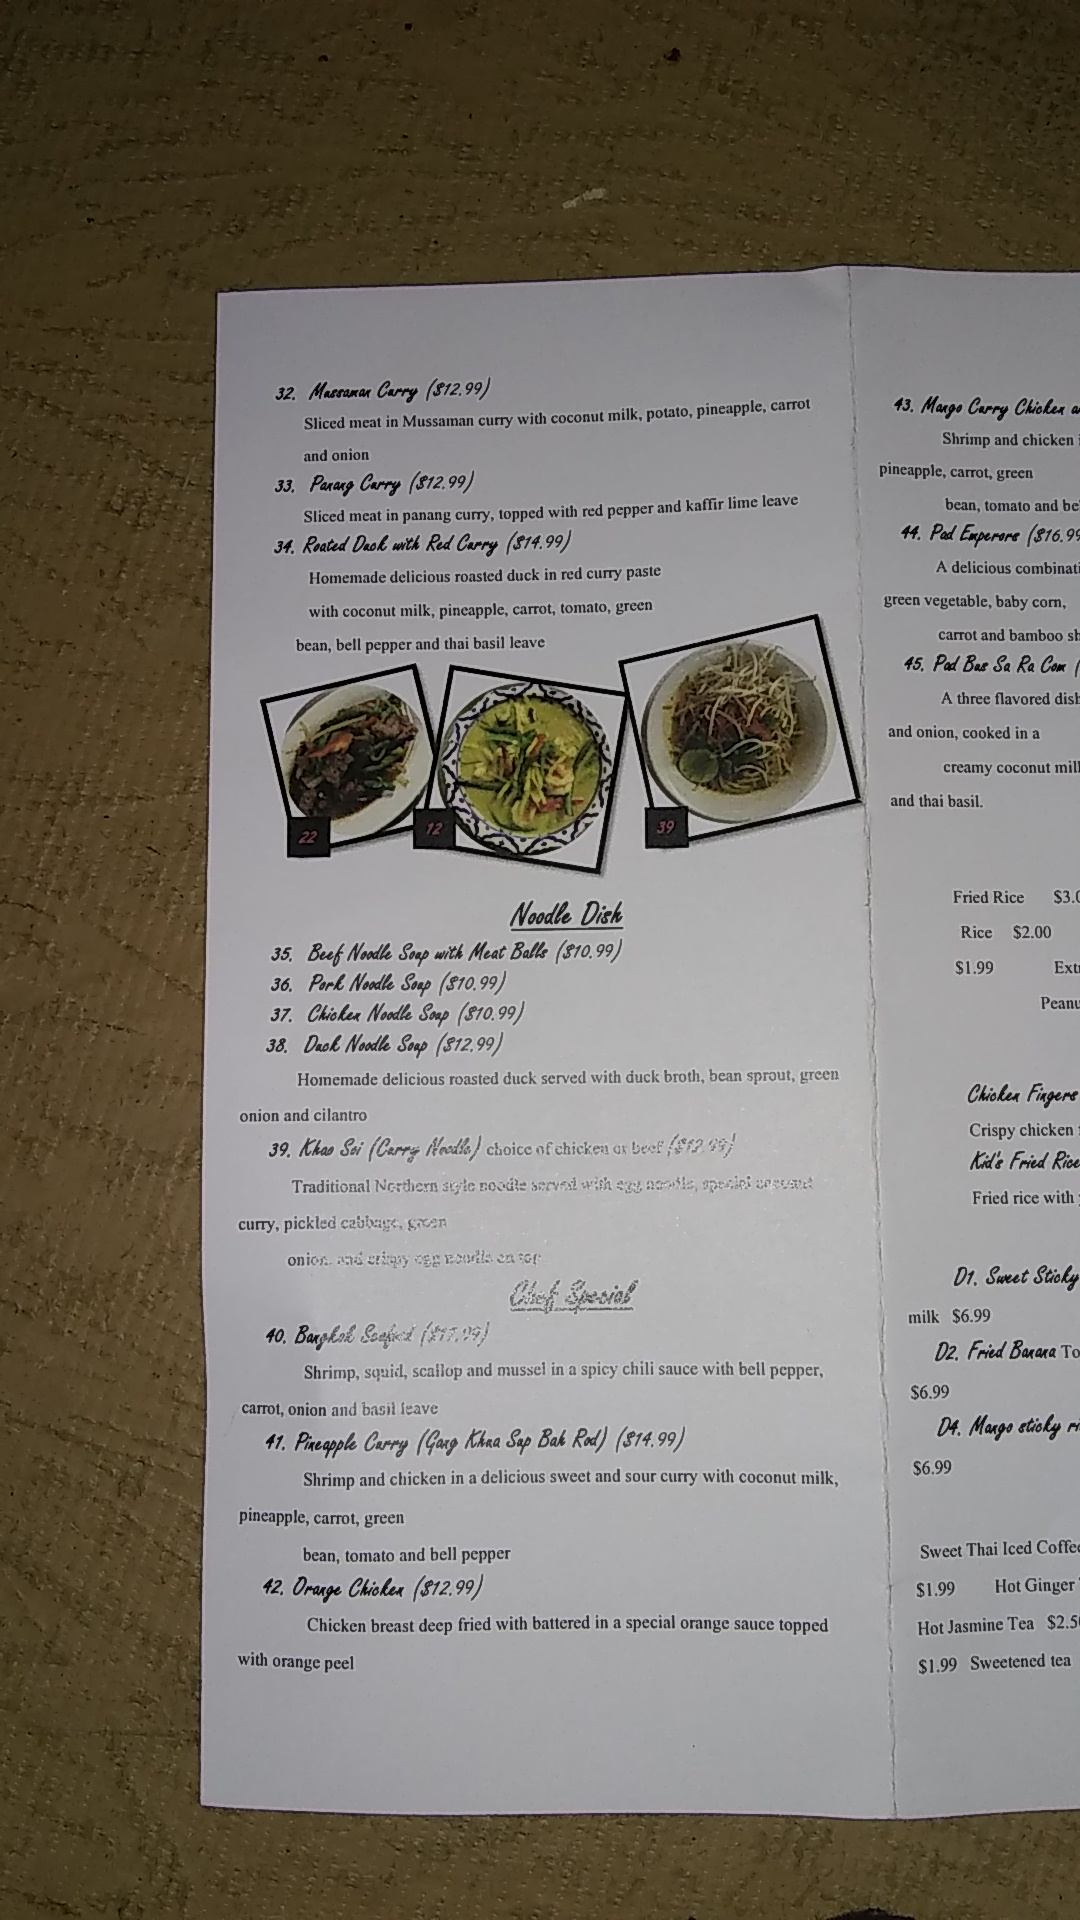 32. Mussaman Curry ($12.99)
Sliced meat in Mussaman curry with coconut milk, potato, pineapple, carrot
and onion
33. Panang Curry ($12.99)
Sliced meat in panang curry, topped with red pepper and kaffir lime leave
34. Roated Duck with Red Curry ($14.99)
Homemade delicious roasted duck in red curry paste
with coconut milk, pineapple, carrot, tomato, green
bean, bell pepper and thai basil leave
22
12
39
Noodle Dish
35. Beef Noodle Soup with Meat Balls ($10.99)
36. Pork Noodle Soup ($10.99)
37. Chicken Noodle Soup ($10.99)
38. Duck Noodle Soup ($12.99)
Homemade delicious roasted duck served with duck broth, bean sprout, green
onion and cilantro
39. Khao Soi (Curry Noodle) choice of chicken or beef ($12.99)
Traditional Northern style noodle served with egg noodle, special coconut
curry, pickled cabbage, green
onion, and crispy egg noodle on top
Chef Special
40. Bangkok Seafood
Shrimp, squid, scallop and mussel in a spicy chili sauce with bell pepper,
carrot, onion and basil leave
41. Pineapple Curry (Gang Khua Sup Bah Rod) ($14.99)
Shrimp and chicken in a delicious sweet and sour curry with coconut milk,
pineapple, carrot, green
bean, tomato and bell pepper
42. Orange Chicken ($12.99)
Chicken breast deep fried with battered in a special orange sauce topped
with orange peel
43. Mango Curry Chicken
Shrimp and chicken
pineapple, carrot, green
bean, tomato and
44. Pad Emperors ($16.99
A delicious
green vegetable, baby corn,
carrot and bamboo
45. Pad Bus Sa Ra Com (
A three flavored dish
and onion, cooked in a
creamy coconut
and thai basil.
Fried Rice
Rice $2.00
$1.99
Chicken Fingers
Crispy chicken
Kid's Fried Rice
Fried rice with
D1. Sweet Sticky
milk $6.99
D2. Fried Banana
$6.99
D4. Mango sticky
$6.99
Sweet Thai Iced Coffee
$1.99 Hot Ginger
Hot Jasmine Tea
$1.99 Sweetened tea